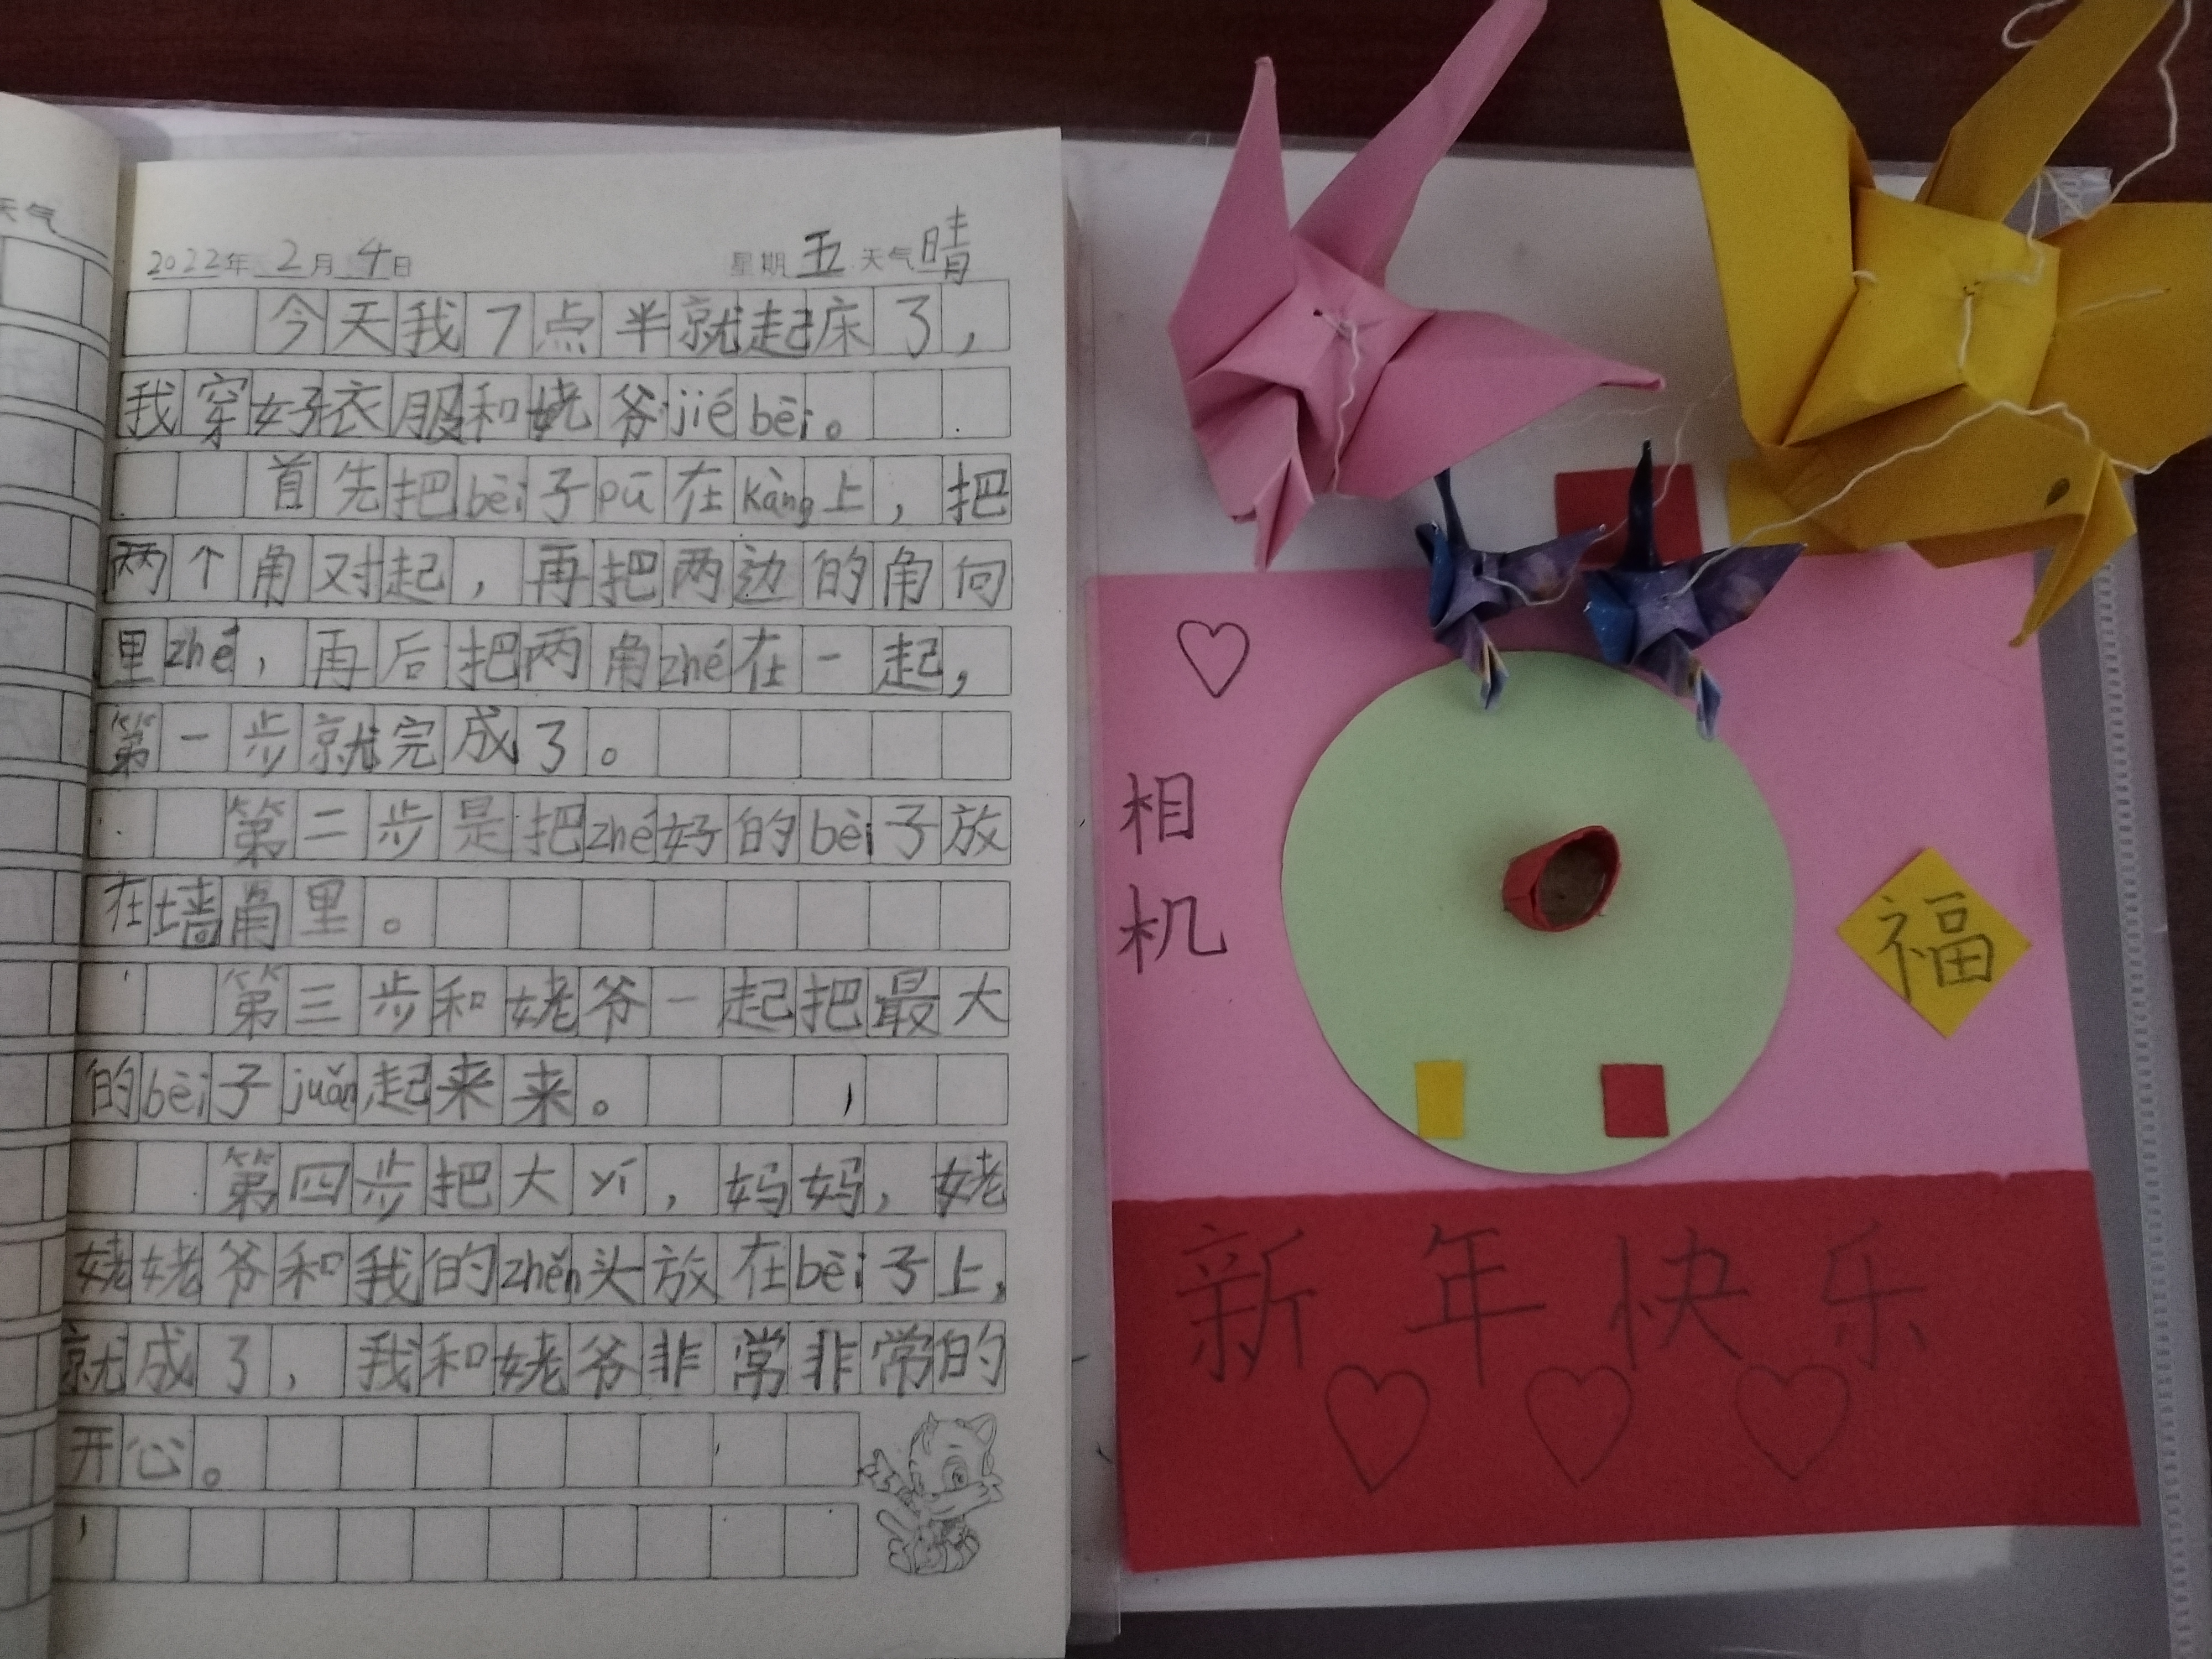 天气
2022年 2月 4日 星期 五 天气 晴
今天我7点半就起床了，
我穿好衣服和姥爷jié bēi。
首先把bèi子pū在kàng上，把
两个角对起，再把两边的角向
里zhé，再后把两角zhé在一起，
第一步就完成了。
第二步是把zhé好的bèi子放
在墙角里。
第三步和姥爷一起把最大
的bèi子juǎn起来来。
第四步把大yí，妈妈，姥
姥姥爷和我的zhěn头放在bèi子上，
就成了，我和姥爷非常非常的
开心。
相
机
福
新年快乐